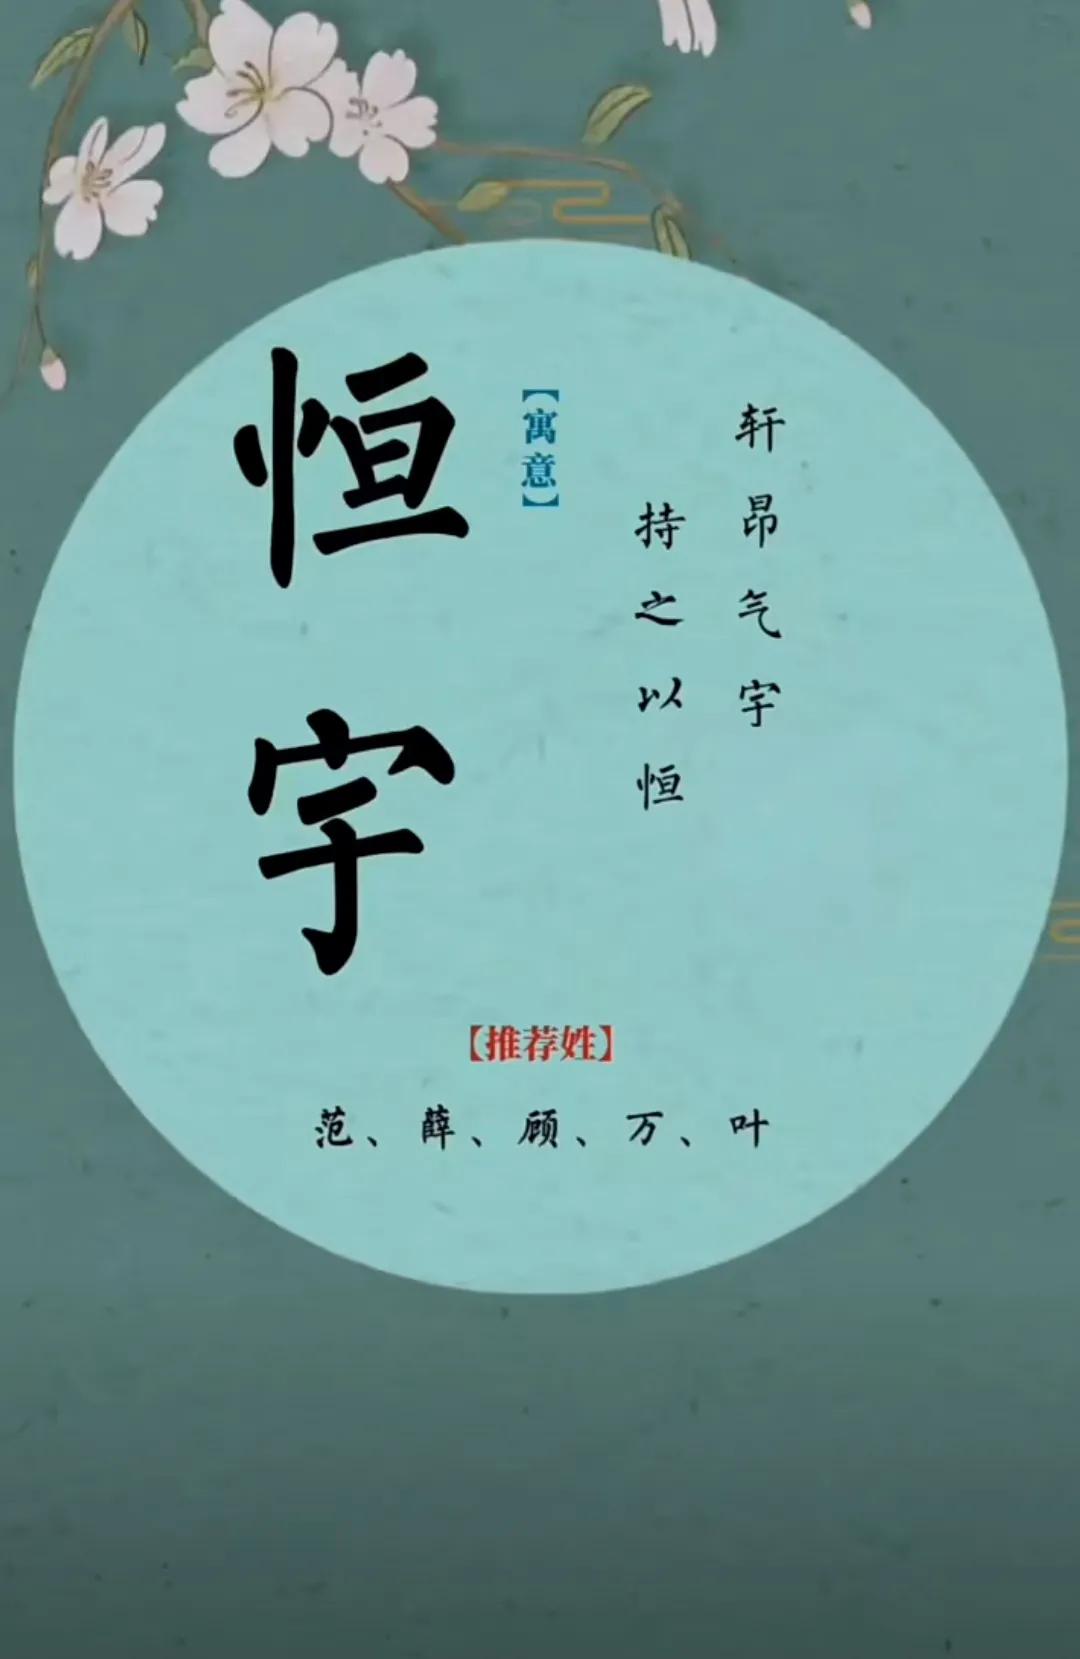 恒宇
【寓意】
轩昂气宇
持之以恒
【推荐姓】
范、薛、顾、万、叶